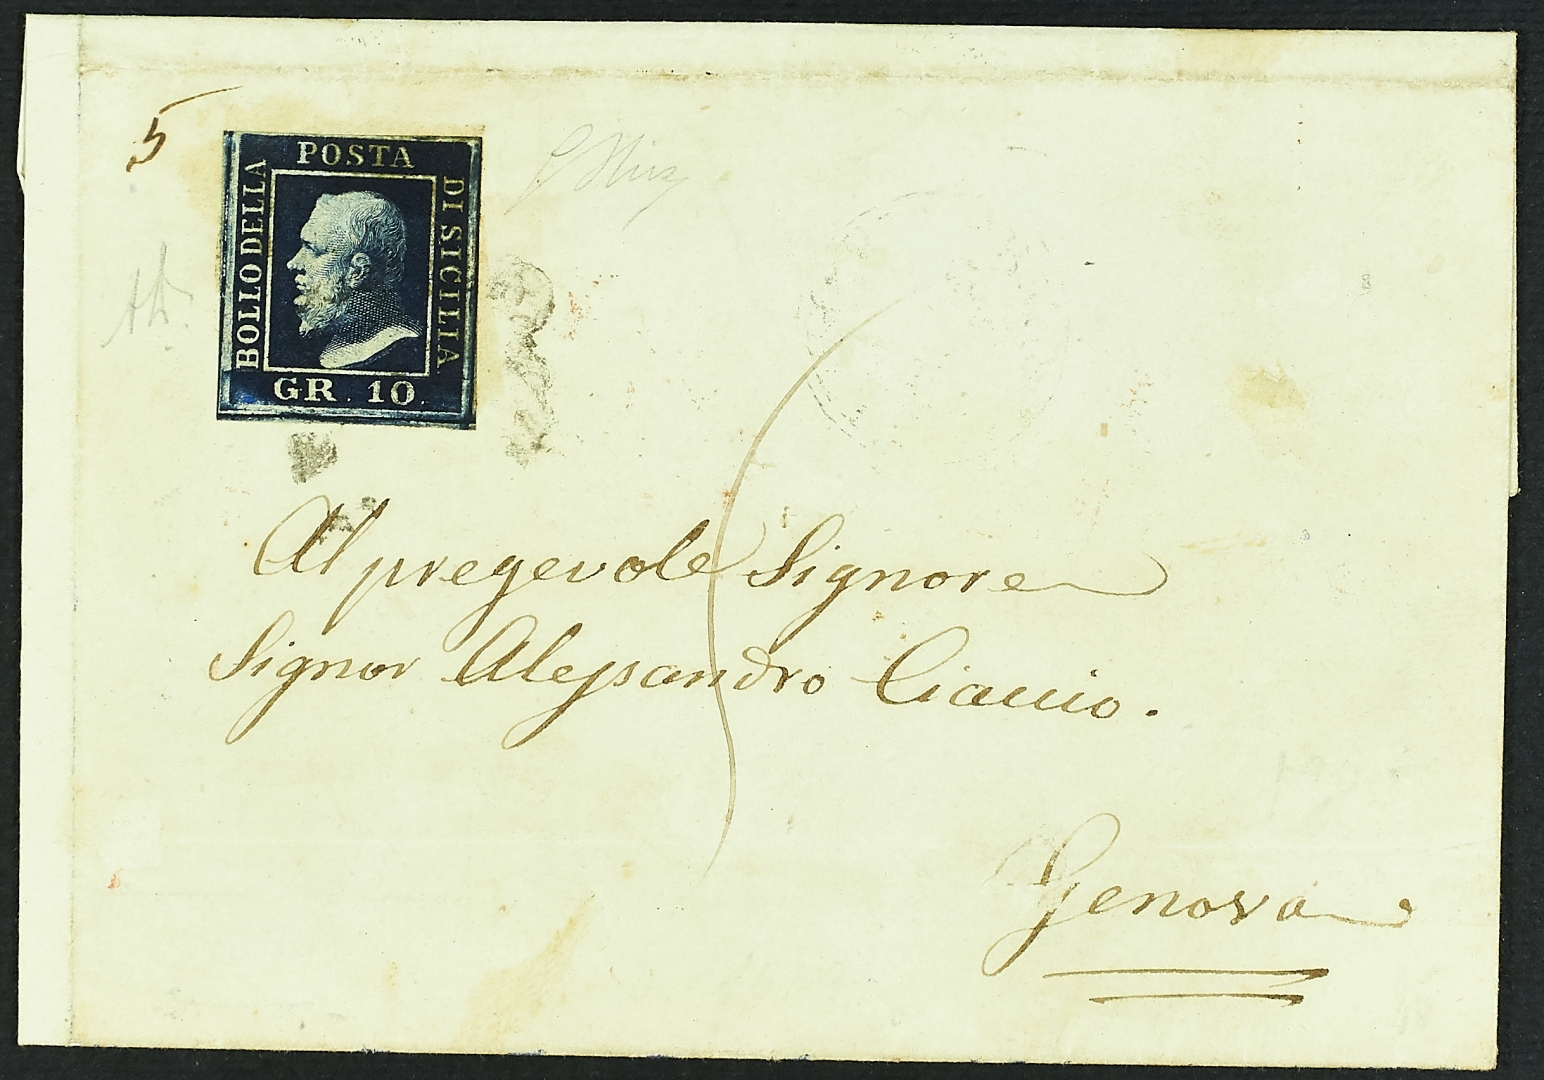 5
POSTA
BOLLO DELLA
DI SICILIA
GR. 10.
Al pregevole Signore
Signor Alessandro Ciaccio.
Genova